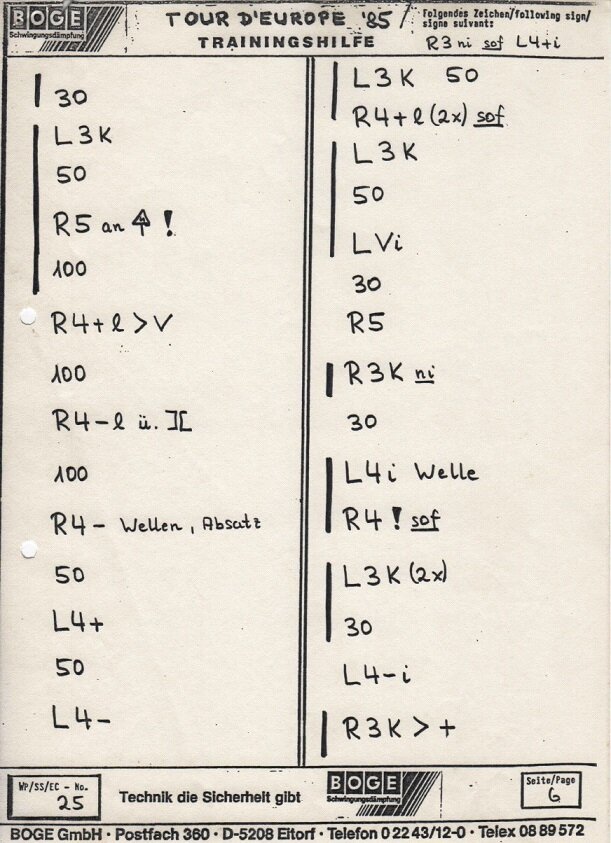 BOGE
Schwingungsdämpfung
TOUR D'EUROPE '85
TRAININGSHILFE
Folgendes Zeichen/following sign/
signe suivant:
R3 ni sof L4+i
30
L3K
50
R5 an !
100
R4+l > V
100
R4-l ü. ][
100
R4- Wellen, Absatz
50
L4+
50
L4-
L3K 50
R4+l (2x) sof
L3K
50
LVi
30
R5
R3K ni
30
L4i Welle
R4! sof
L3K (2x)
30
L4-i
R3K > +
WP/SS/EC - No.
25
Technik die Sicherheit gibt
BOGE
Schwingungsdämpfung
Seite/Page
6
BOGE GmbH · Postfach 360 · D-5208 Eitorf · Telefon 0 22 43/12-0 · Telex 08 89 572